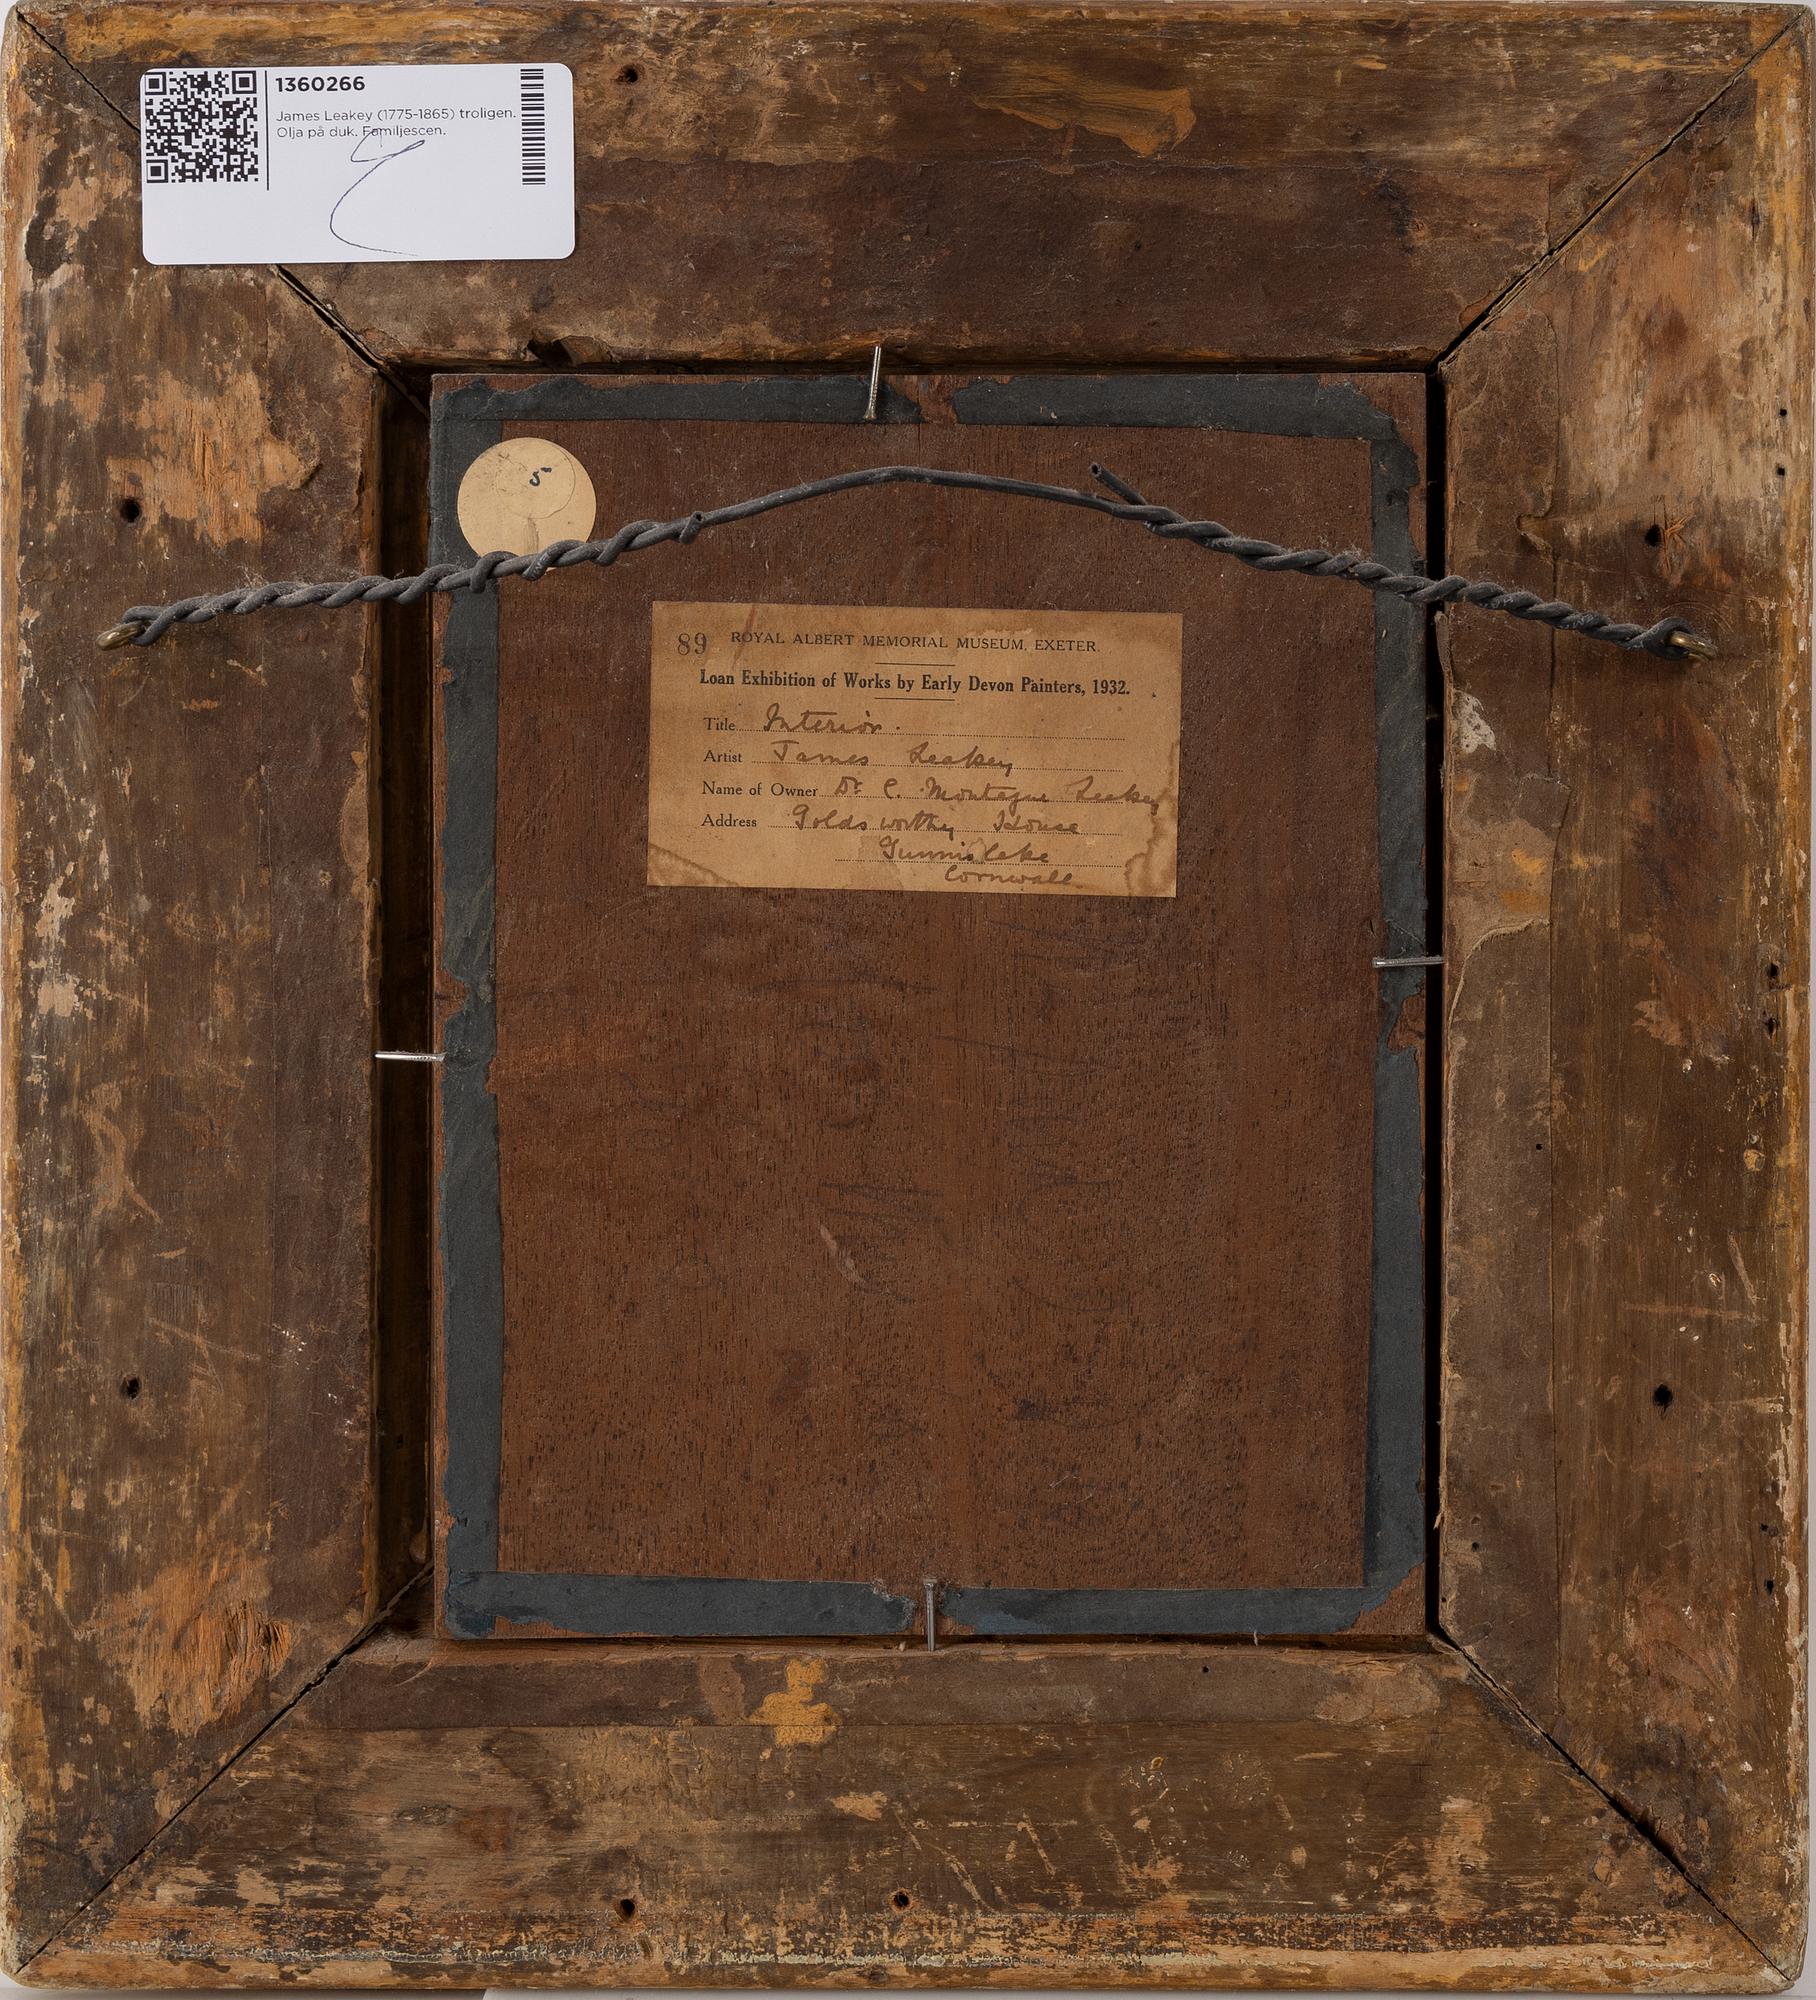 1360266
James Leakey (1775-1865) troligen.
Olja på duk. Familjescen.
5
89 ROYAL ALBERT MEMORIAL MUSEUM, EXETER.
Loan Exhibition of Works by Early Devon Painters, 1932.
Title Interior.
Artist James Leakey
Name of Owner Dr. C. Montague Leakey
Address Goldsworthy House
Gunnislake
Cornwall.